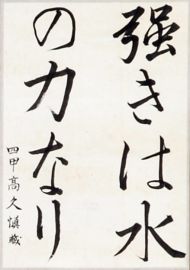 強きは水
の力なり
四甲高久慎哉